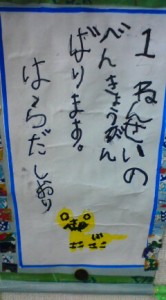 1ねんせいの
べんきょうがん
ばります。
はらだしおり